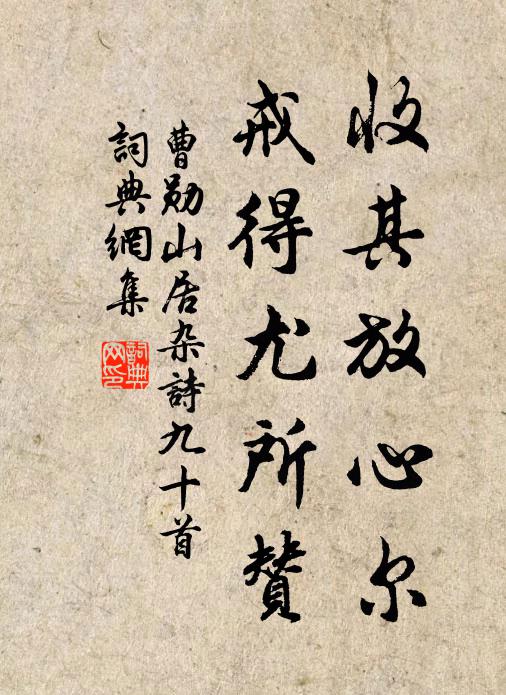 收其放心尔
戒得尤所赞
曹勋山居杂詩九十首
詞典網集
詞典
网印